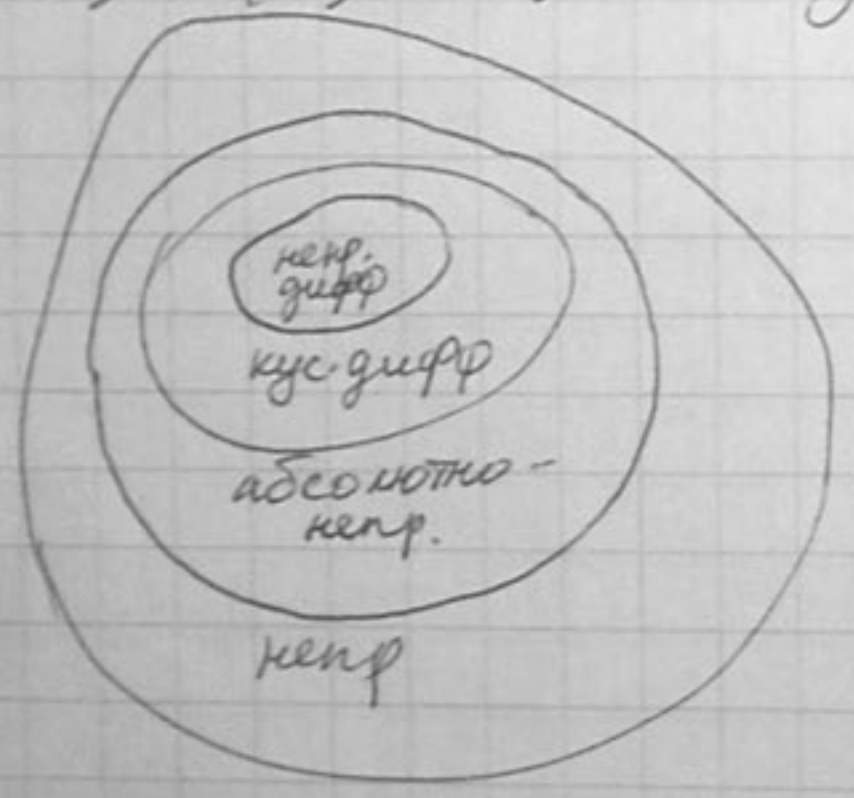 непр.
дифф
кус. дифф
абсолютно-
непр.
непр